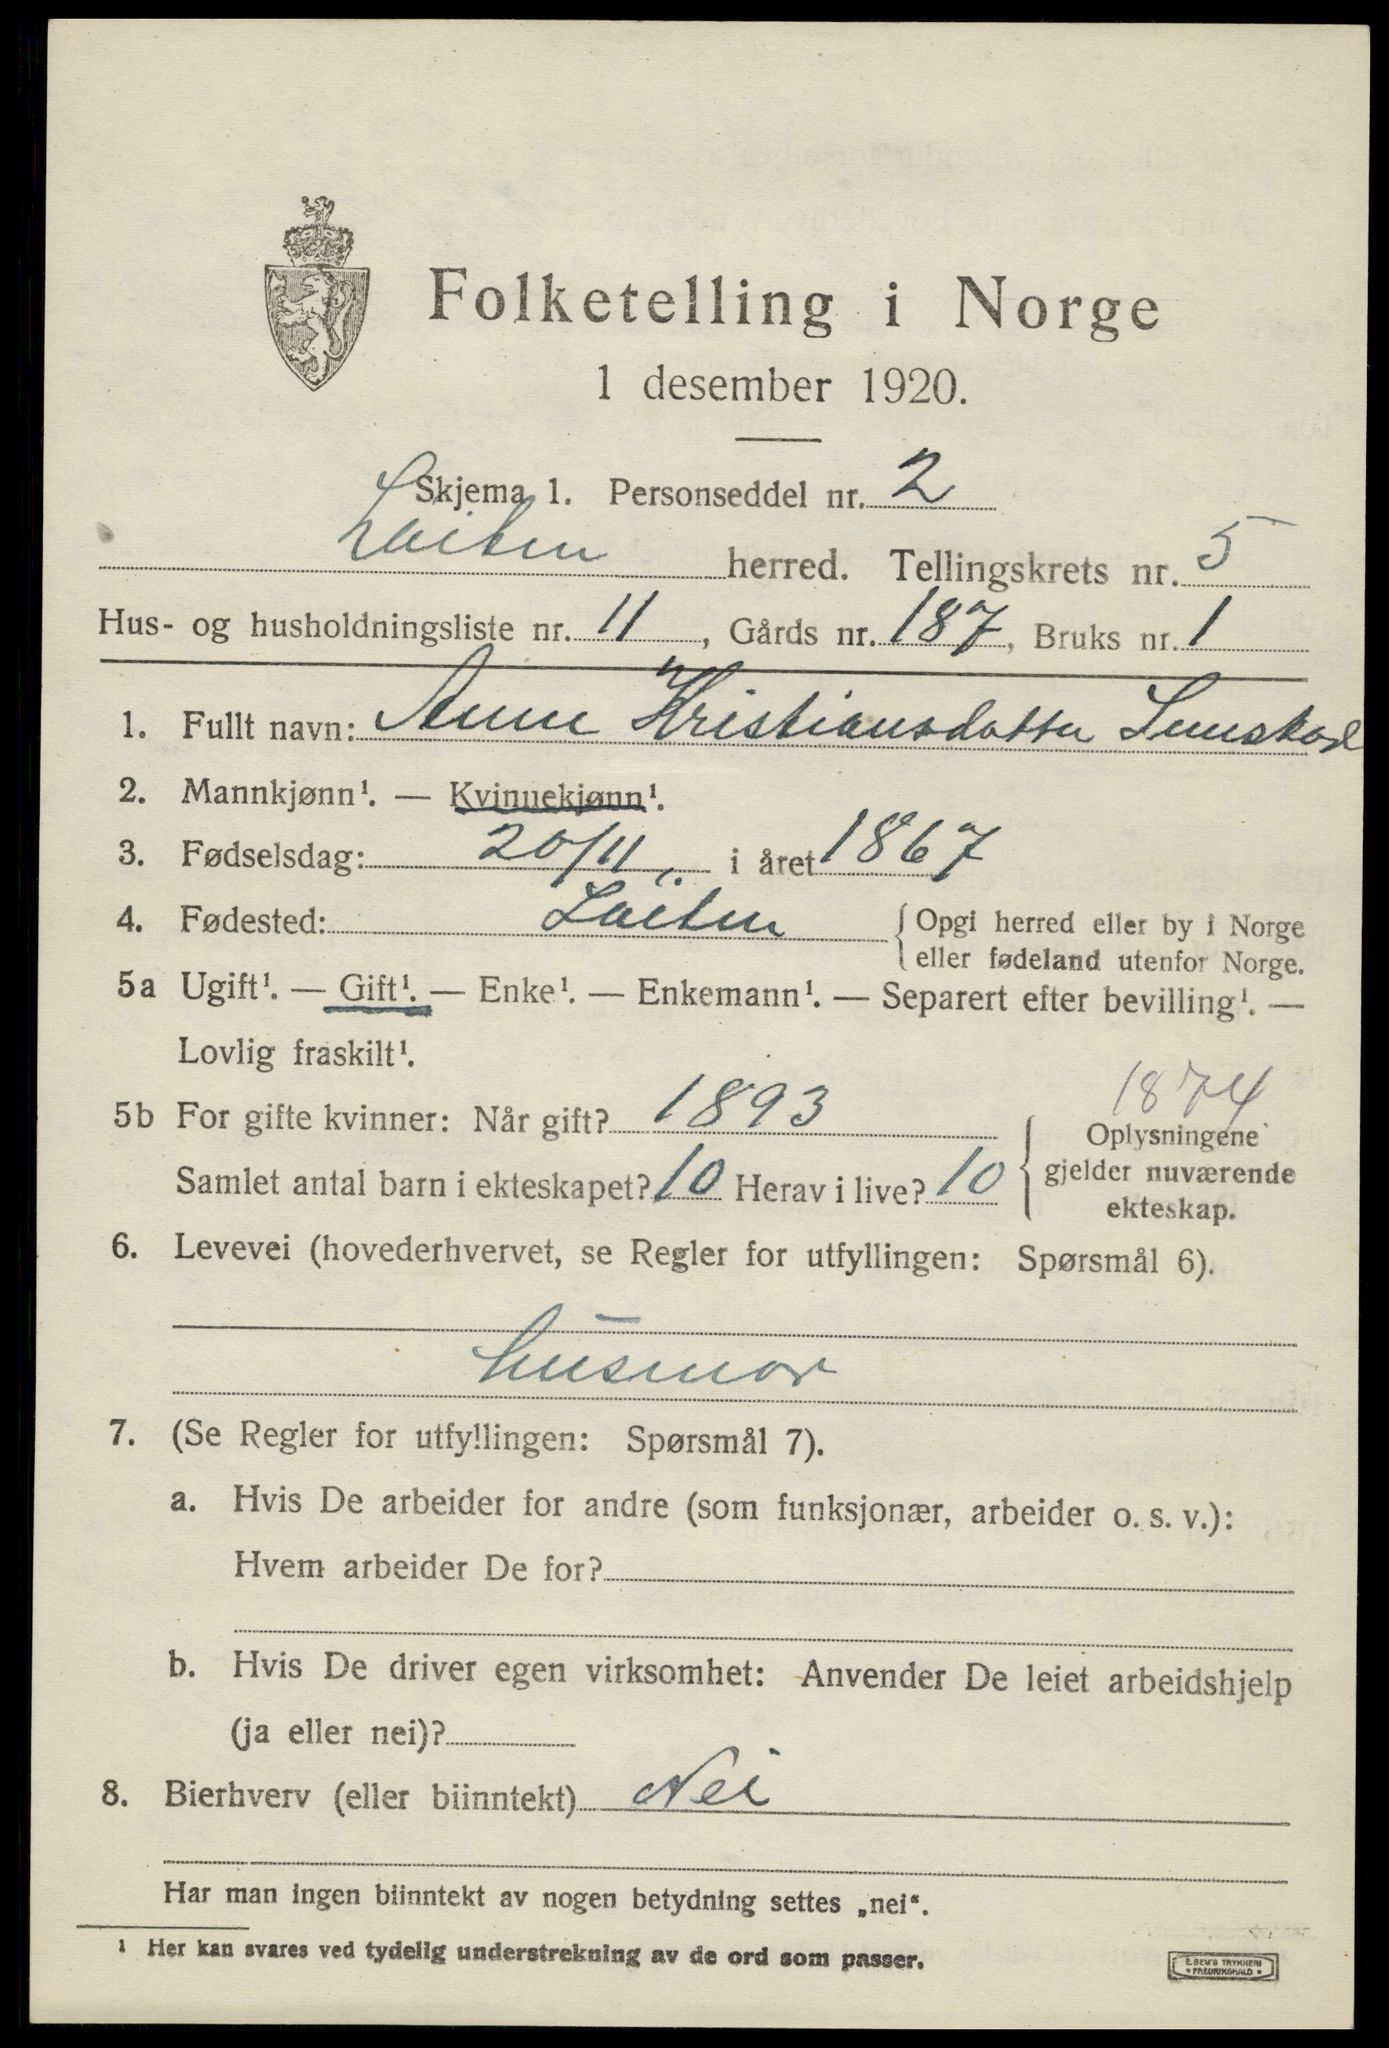 Folketelling i Norge
1 desember 1920.
Skjema 1. Personseddel nr. 2
Løiten herred. Tellingskrets nr. 5
Hus- og husholdningsliste nr. 11, Gårds nr. 187, Bruks nr. 1
1. Fullt navn: Anne Kristiansdatter
2. Mannkjønn¹. — Kvinnekjønn¹.
3. Fødselsdag: 20/11 i året 1867
4. Fødested: Løiten { Opgi herred eller by i Norge
eller fødeland utenfor Norge.
5a Ugift¹. — Gift¹. — Enke¹. — Enkemann¹. — Separert efter bevilling¹. —
Lovlig fraskilt¹.
1874
5b For gifte kvinner: Når gift? 1893 { Oplysningene
Samlet antal barn i ekteskapet? 10 Herav i live? 10 gjelder nuværende
ekteskap.
6. Levevei (hovederhvervet, se Regler for utfyllingen: Spørsmål 6).
husmor
7. (Se Regler for utfyllingen: Spørsmål 7).
a. Hvis De arbeider for andre (som funksjonær, arbeider o. s. v.):
Hvem arbeider De for?
b. Hvis De driver egen virksomhet: Anvender De leiet arbeidshjelp
(ja eller nei)?
8. Bierhverv (eller biinntekt) Nei
Har man ingen biinntekt av nogen betydning settes „nei“.
¹ Her kan svares ved tydelig understrekning av de ord som passer.
E. SEM'S TRYKKERI
• FREDRIKSHALD •